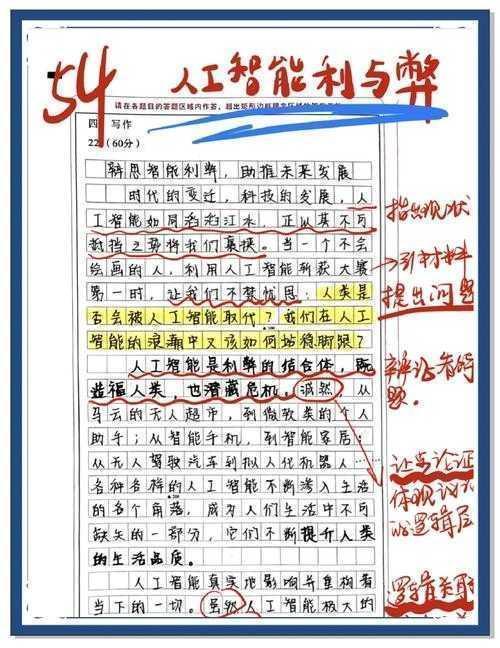 54 人工智能利与弊
请在各题目的答题区域内作答，超出矩形边框限定区域的答案无效
四 写作
22(60分)
辩思智能利弊，助推未来发展
时代的变迁，科技的发展，人
工智能如同滔滔江水，正以其不可
阻挡之势将我们裹挟。当一个不会
绘画的人，利用人工智能斩获大赛
第一时，让我们不禁忧思：人类是
否会被人工智能取代？我们在人工
智能的浪潮中又该如何站稳脚跟？
人工智能是利弊的结合体，既
造福人类，也潜藏危机，诚然，从
马云的无人超市，到微软类的个人
助手；从智能手机，到智能家居；
从无人驾驶汽车到拟人化机器人……
各种各样的人工智能不断渗入生活
的各个角落，成为人们生活中不可
缺失的一部分，它们不断提升人类
的生活品质。
人工智能真实地影响并重构着
当下的一切。虽然人工智能极大的
指出现状
引材料
提出问题
辩证看待
题。
让步论证
体现议大
的逻辑层
逻辑关联